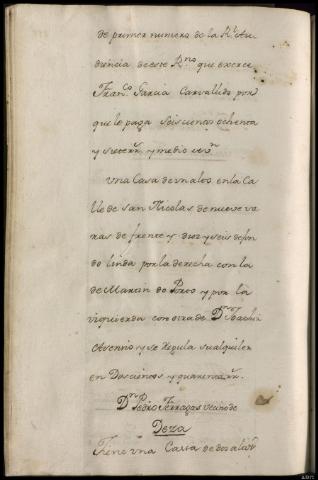 de primer numero de la Rl. Au
diencia de este Rno. que exerce
Franco. Garcia Carvallido por
que le paga Seiscientos ochenta
y siete rr. y medio
Una Casa de un alto en la Ca
lle de San Nicolas de nueve va
ras de frente y diez y seis de fon
do linda por la derecha con la
de Maran de Porto y por la
izquierda con otra de Dn. Joachin
Asensio y se Regula su alquiler
en Doscientos y quarenta rr.
Dn. Pedro Terrazas vecino de
Deza
Tiene una Cassa de dos altos